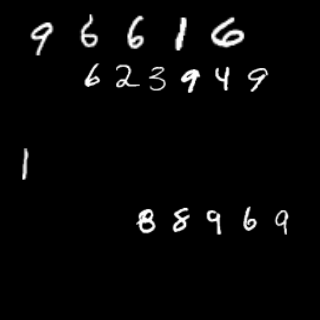 96616
623949
1
88969